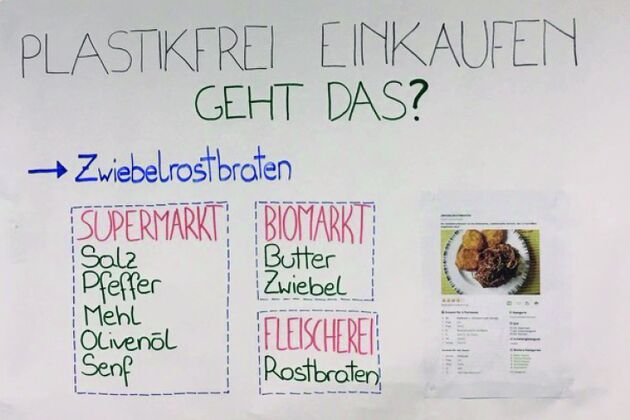 PLASTIKFREI EINKAUFEN
GEHT DAS?
→ Zwiebelrostbraten
SUPERMARKT
Salz
Pfeffer
Mehl
Olivenöl
Senf
BIOMARKT
Butter
Zwiebel
FLEISCHEREI
Rostbraten
ZWIEBELROSTBRATEN